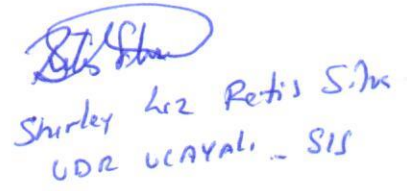 Shirley Liz Retis Silva
UDR UCAYALI - SIS